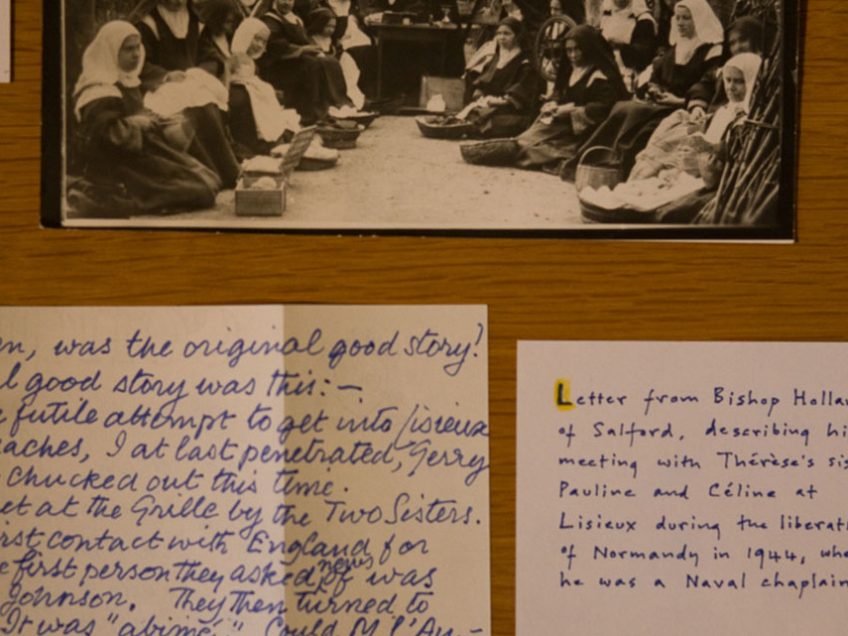 en, was the original good story?
l good story was this:-
e futile attempt to get into Lisieux
eaches, I at last penetrated, Gerry
chucked out this time.
et at the Grille by the Two Sisters.
rst contact with England for
e first person they asked news of was
Johnson. They then turned to
It was "abimé". Could M l'Au-
Letter from Bishop Hollan
of Salford, describing hi
meeting with Thérèse's sis
Pauline and Céline at
Lisieux during the liberati
of Normandy in 1944, whe
he was a Naval chaplain